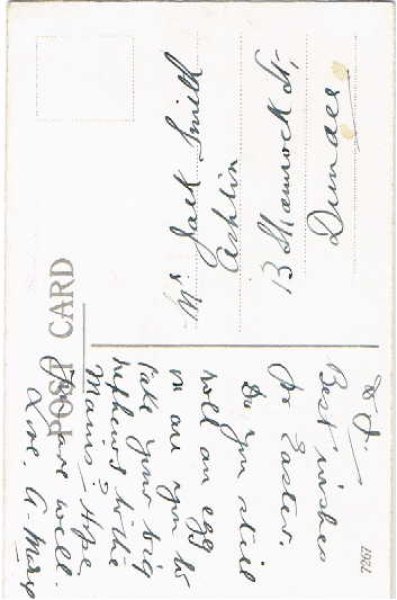 POST CARD
Mr Jack Smith
Ashlin
13 Shamrock St,
Dundee
D J.
Best wishes
for Easter.
Do you still
roll an egg
or are you to
take your big
nephews to the
Mains? Hope
you are well.
Love. A. Mary